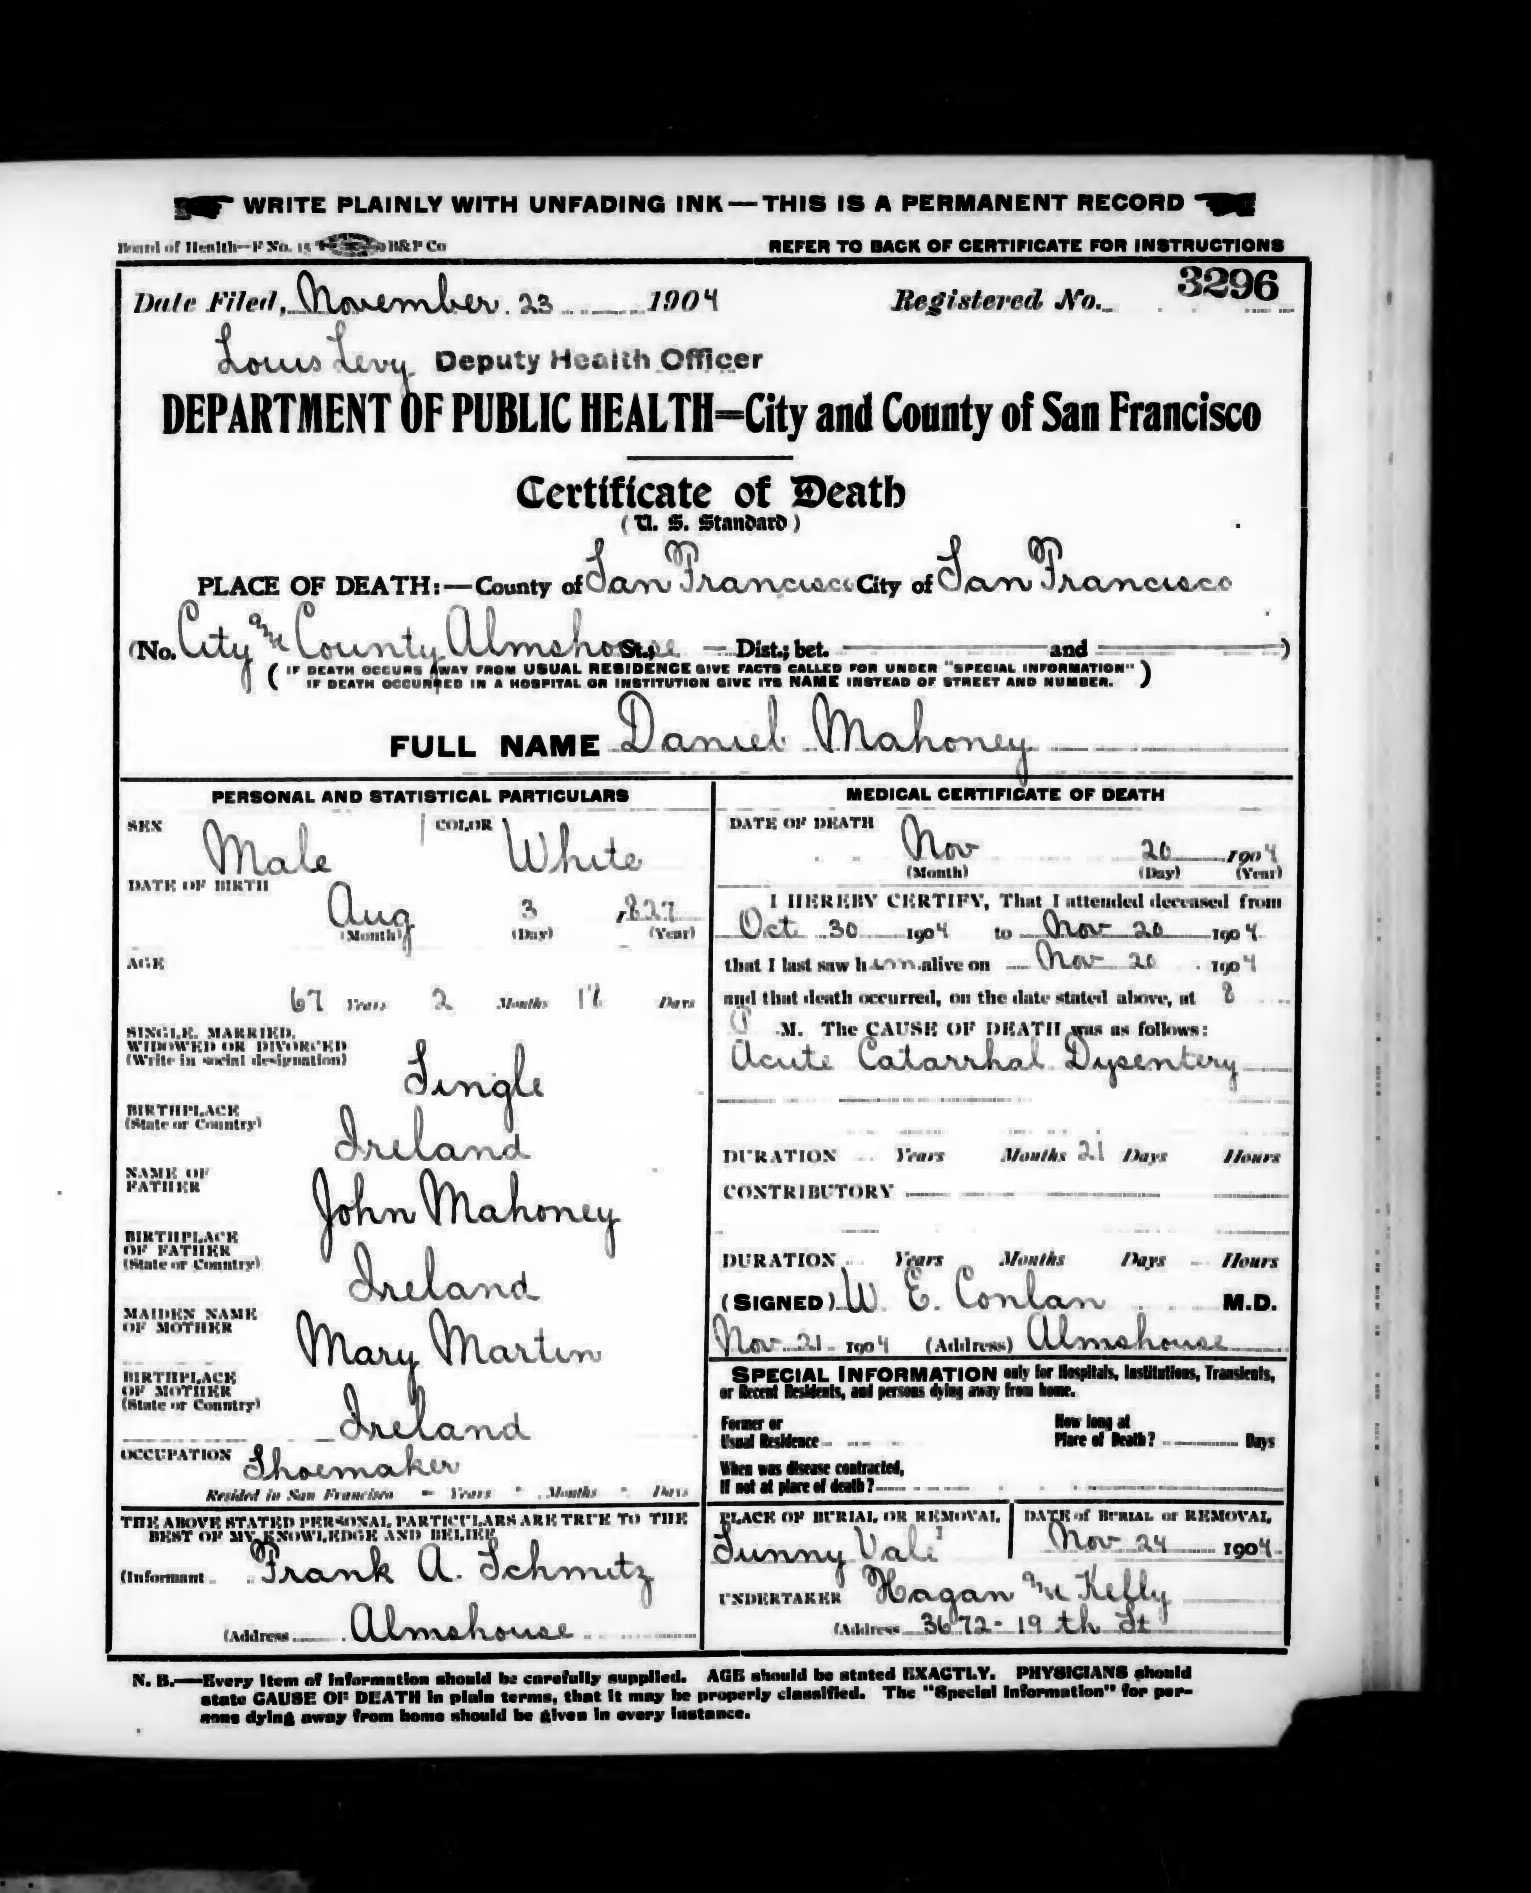 WRITE PLAINLY WITH UNFADING INK—THIS IS A PERMANENT RECORD
Board of Health—F No. 15 B&P Co REFER TO BACK OF CERTIFICATE FOR INSTRUCTIONS
Date Filed, November 23 1904 Registered No. 3296
Louis Levy Deputy Health Officer
DEPARTMENT OF PUBLIC HEALTH=City and County of San Francisco
Certificate of Death
(U. S. Standard)
PLACE OF DEATH:—County of San Francisco City of San Francisco
(No. City and County Almshouse St.; — Dist.; bet. — and —)
(IF DEATH OCCURS AWAY FROM USUAL RESIDENCE GIVE FACTS CALLED FOR UNDER "SPECIAL INFORMATION"
IF DEATH OCCURRED IN A HOSPITAL OR INSTITUTION GIVE ITS NAME INSTEAD OF STREET AND NUMBER.)
FULL NAME Daniel Mahoney
PERSONAL AND STATISTICAL PARTICULARS
SEX Male COLOR White
DATE OF BIRTH
Aug 3 1827
(Month) (Day) (Year)
AGE
67 Years 2 Months 17 Days
SINGLE, MARRIED,
WIDOWED OR DIVORCED
(Write in social designation)
Single
BIRTHPLACE
(State or Country)
Ireland
NAME OF
FATHER
John Mahoney
BIRTHPLACE
OF FATHER
(State or Country)
Ireland
MAIDEN NAME
OF MOTHER
Mary Martin
BIRTHPLACE
OF MOTHER
(State or Country)
Ireland
OCCUPATION Shoemaker
Resided in San Francisco - Years - Months - Days
THE ABOVE STATED PERSONAL PARTICULARS ARE TRUE TO THE
BEST OF MY KNOWLEDGE AND BELIEF
(Informant Frank A. Schmitz
(Address Almshouse
MEDICAL CERTIFICATE OF DEATH
DATE OF DEATH
Nov 20 1904
(Month) (Day) (Year)
I HEREBY CERTIFY, That I attended deceased from
Oct 30 1904 to Nov 20 1904
that I last saw him alive on Nov 20 1904
and that death occurred, on the date stated above, at 8
P M. The CAUSE OF DEATH was as follows:
Acute Catarrhal Dysentery
DURATION Years Months 21 Days Hours
CONTRIBUTORY
DURATION Years Months Days Hours
(SIGNED) W. E. Conlan M.D.
Nov 21 1904 (Address) Almshouse
SPECIAL INFORMATION only for Hospitals, Institutions, Transients,
or Recent Residents, and persons dying away from home.
Former or
Usual Residence
How long at
Place of Death? Days
When was disease contracted,
If not at place of death?
PLACE OF BURIAL OR REMOVAL
Sunny Vale
DATE of BURIAL or REMOVAL
Nov 24 1904
UNDERTAKER Hagan and Kelly
(Address 3672-19th St
N. B.—Every item of information should be carefully supplied. AGE should be stated EXACTLY. PHYSICIANS should
state CAUSE OF DEATH in plain terms, that it may be properly classified. The "Special Information" for per-
sons dying away from home should be given in every instance.